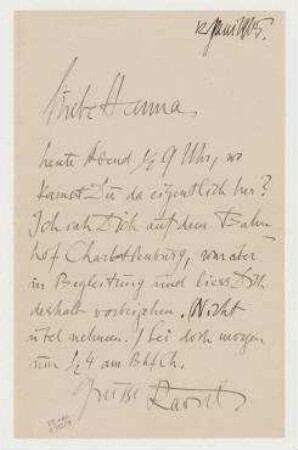 12 Juni 1905.
Liebe Hanna,
heute Abend ½ 9 Uhr, wo
kamst Du da eigentlich her?
Ich sah Dich auf dem Bahn
hof Charlottenburg, war aber
in Begleitung und liess Dich
deshalb vorbeigehen. Nicht
übel nehmen. Sei doch morgen
um ½ 4 am Bhf Ch.
Grüsse Raoul